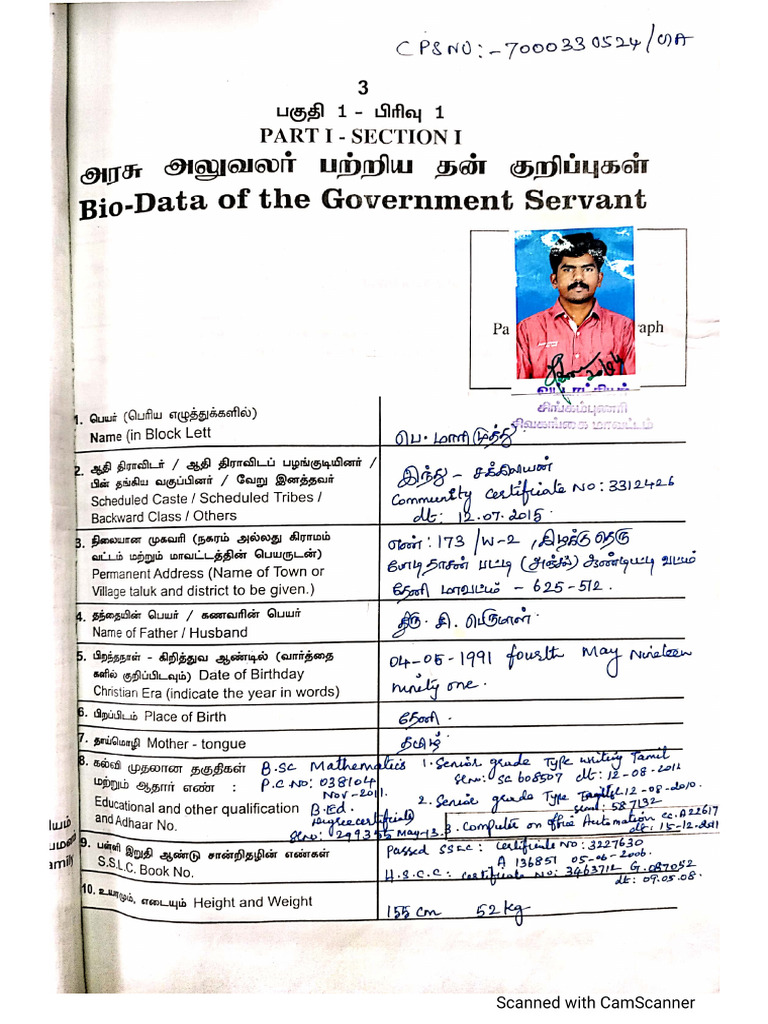 CPSNO:-7000330524/GA
3
பகுதி 1 - பிரிவு 1
PART I - SECTION I
அரசு அலுவலர் பற்றிய தன் குறிப்புகள்
Bio-Data of the Government Servant
Pa
raph
வட்டாட்சியர்
சிங்கம்புணரி
சிவகங்கை மாவட்டம்
1. பெயர் (பெரிய எழுத்துக்களில்)
Name (in Block Lett
பெ. மாரிமுத்து
2. ஆதி திராவிடர் / ஆதி திராவிடப் பழங்குடியினர் /
பின் தங்கிய வகுப்பினர் / வேறு இனத்தவர்
Scheduled Caste / Scheduled Tribes /
Backward Class / Others
இந்து - சக்கிலியன்
Community Certificate NO: 3312426
dt: 12.07.2015
3. நிலையான முகவரி (நகரம் அல்லது கிராமம்
வட்டம் மற்றும் மாவட்டத்தின் பெயருடன்)
Permanent Address (Name of Town or
Village taluk and district to be given.)
எண்: 173/W-2, கிழக்கு தெரு
போடிதாசன் பட்டி (அஞ்சல்) ஆண்டிபட்டி வட்டம்
தேனி மாவட்டம் - 625-512.
4. தந்தையின் பெயர் / கணவரின் பெயர்
Name of Father / Husband
திரு. சி. பெருமாள்.
5. பிறந்தநாள் - கிறித்துவ ஆண்டில் (வார்த்தை
களில் குறிப்பிடவும்) Date of Birthday
Christian Era (indicate the year in words)
04-05-1991 fourth May Nineteen
ninety one.
6. பிறப்பிடம் Place of Birth
தேனி.
7. தாய்மொழி Mother - tongue
தமிழ்
8. கல்வி முதலான தகுதிகள்
மற்றும் ஆதார் எண் :
Educational and other qualification
and Adhaar No.
B.SC Mathematics
P.C NO: 038104
Nov-2011.
B.Ed.
Degree certificate
Slno: 299355 May-13.
1. Senior grade Type writing Tamil
Slno: SC 608507 dt: 12-08-2011
2. Senior grade Type 12-08-2010.
587132
3. Computer on office Automation CC.A22617
dt: 15-12-2011
9. பள்ளி இறுதி ஆண்டு சான்றிதழின் எண்கள்
S.S.L.C. Book No.
Passed SSLC: Certificate NO: 3227630
A 136851 05-06-2006.
H.S.C.C: Certificate NO: 3463712 G.087052
dt: 09.05.08.
10. உயரமும், எடையும் Height and Weight
155 cm 52 kg
யம்
பமனை
amily
Scanned with CamScanner